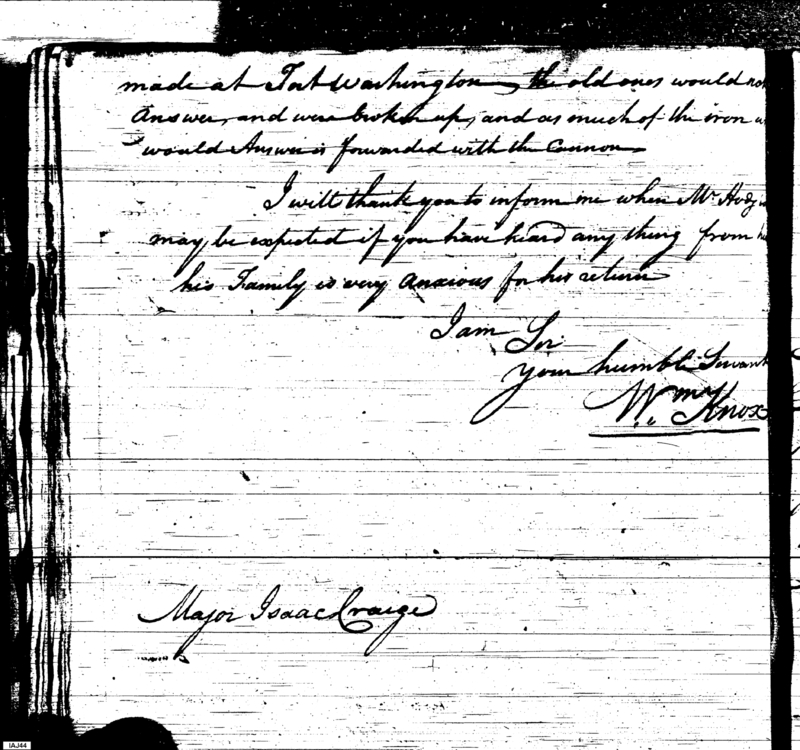 made at Fort Washington, the old ones would not
Answer, and were broken up, and as much of the iron
would Answer is forwarded with the Cannon
I will thank you to inform me when Mr. Hodg
may be expected if you have heard any thing from
his Family is very anxious for his return
I am Sir
your humble Servant
Wm. Knox
Major Isaac Craige
IAJ44